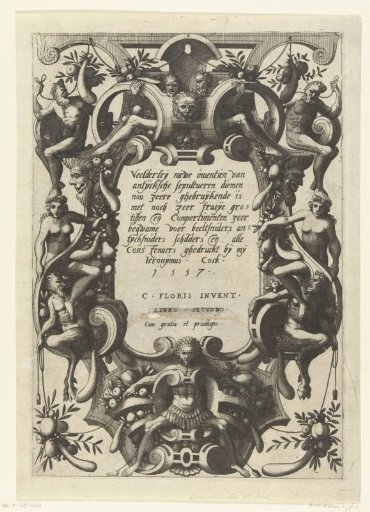 Veelderley niewe inventien van
antycksche sepultueren diemen
nou zeere ghebruykende is
met noch zeer fraeye gro=
tissen en Compertimenten zeer
beqwame voer beeltsniders an=
tycksniders schilders en alle
Constenaers ghedruckt bij my
Ieronymus Cock
1557.
C. FLORIS INVENT.
LIBRO SECUNDO.
Cum gratia et privilegio